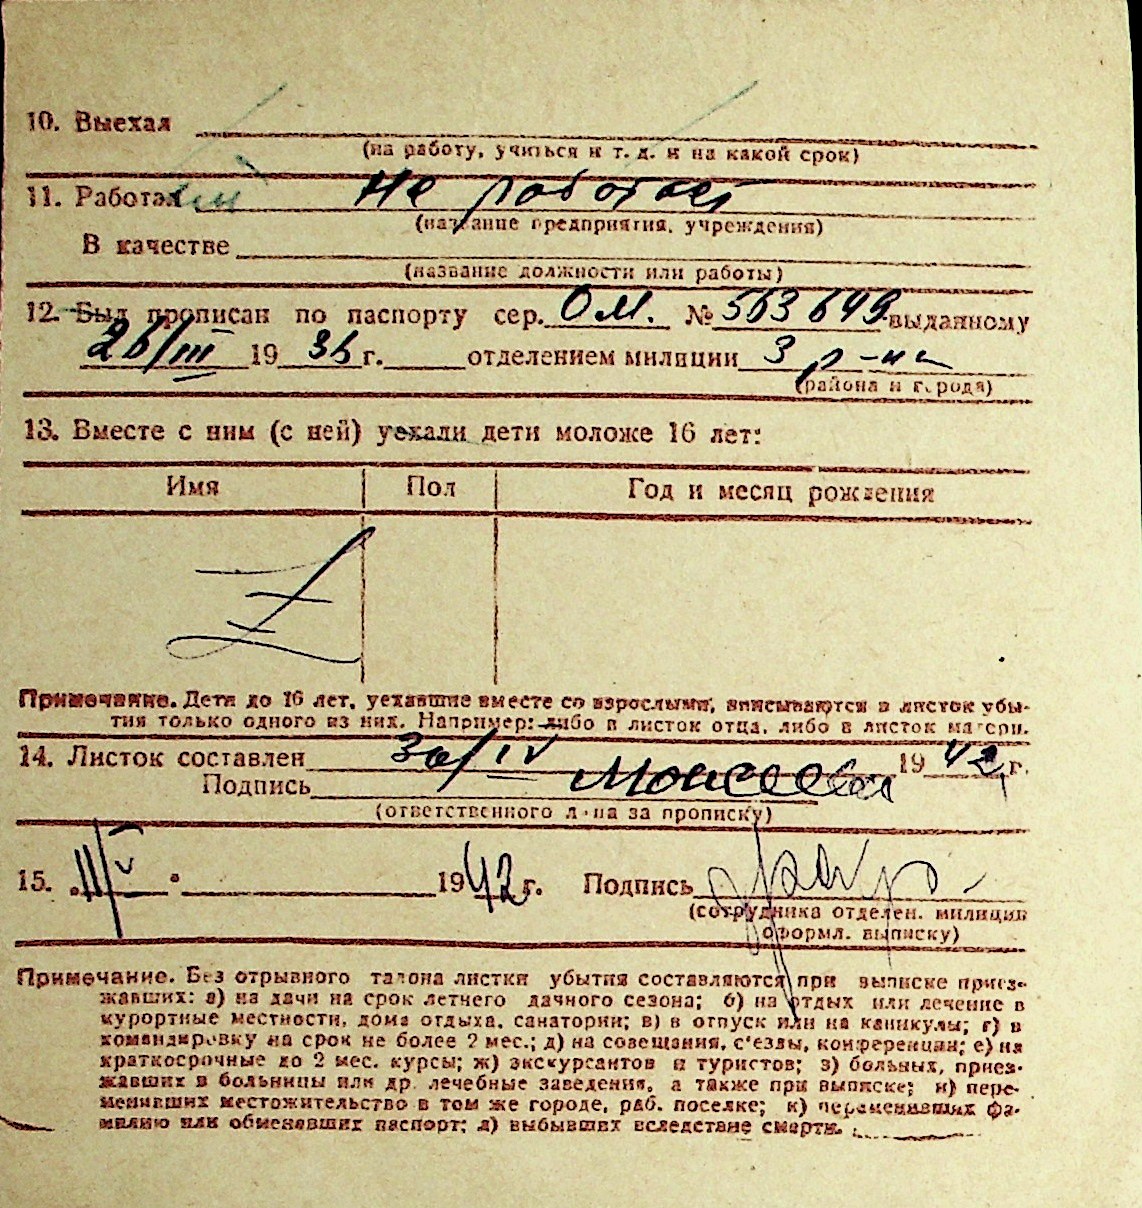 10. Выехал
(на работу, учиться и т. д. и на какой срок)
11. Работал Не работает
(название предприятия, учреждения)
В качестве
(название должности или работы)
12. Был прописан по паспорту сер. ОМ. № 563649 выданному
26/III 1936 г. отделением милиции 3 р-на
(района и города)
13. Вместе с ним (с ней) уехали дети моложе 16 лет:
Имя Пол Год и месяц рождения
Z
Примечание. Дети до 16 лет, уехавшие вместе со взрослыми, вписываются в листок убы-
тия только одного из них. Например: либо в листок отца, либо в листок матери.
14. Листок составлен 30/IV 1942 г.
Подпись Моисеева
(ответственного лица за прописку)
15. "11/V" 1942 г. Подпись
(сотрудника отделен. милиции
оформл. выписку)
Примечание. Без отрывного талона листки убытия составляются при выписке приез-
жавших: а) на дачи на срок летнего дачного сезона; б) на отдых или лечение в
курортные местности, дома отдыха, санатории; в) в отпуск или на каникулы; г) в
командировку на срок не более 2 мес.; д) на совещания, с'езды, конференции; е) на
краткосрочные до 2 мес. курсы; ж) экскурсантов и туристов; з) больных, приез-
жавших в больницы или др. лечебные заведения, а также при выписке; и) пере-
менивших местожительство в том же городе, раб. поселке; к) переменивших фа-
милию или обменявших паспорт; л) выбывших вследствие смерти.